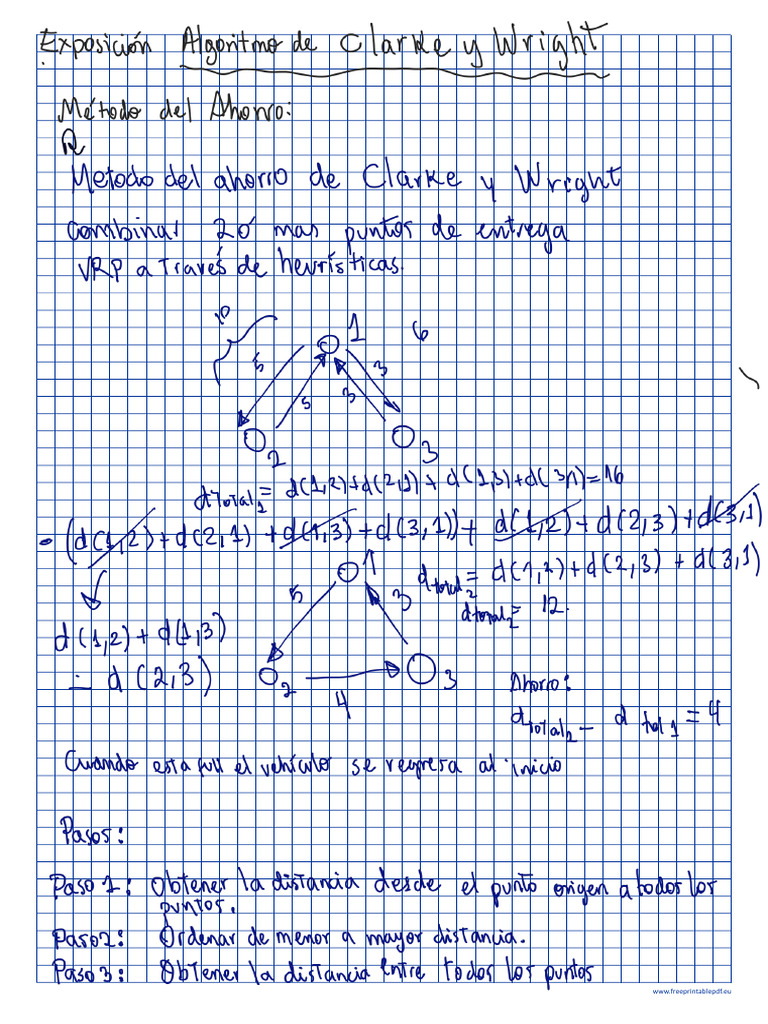 Exposición Algoritmo de Clarke y Wright
Método del Ahorro:
Metodo del ahorro de Clarke y Wright
combinar 2 ó mas puntos de entrega
VRP a Través de heurísticas.
10
1
6
5
5
3
3
2
3
dTotal1 = d(1,2)+d(2,1)+d(1,3)+d(3,1)=16
-(d(1,2)+d(2,1)+d(1,3)+d(3,1))+d(1,2)+d(2,3)+d(3,1)
1
dtotal2= d(1,2)+d(2,3)+d(3,1)
5
3
dtotal2= 12.
d(1,2)+d(1,3)
- d(2,3)
2
4
3
Ahorro:
dtotal2 - d tol1 = 4
Cuando esta full el vehículo se regresa al inicio
Pasos:
Paso 1: Obtener la distancia desde el punto origen a todos los
puntos.
Paso2: Ordenar de menor a mayor distancia.
Paso 3: Obtener la distancia entre todos los puntos
www.freeprintablepdf.eu